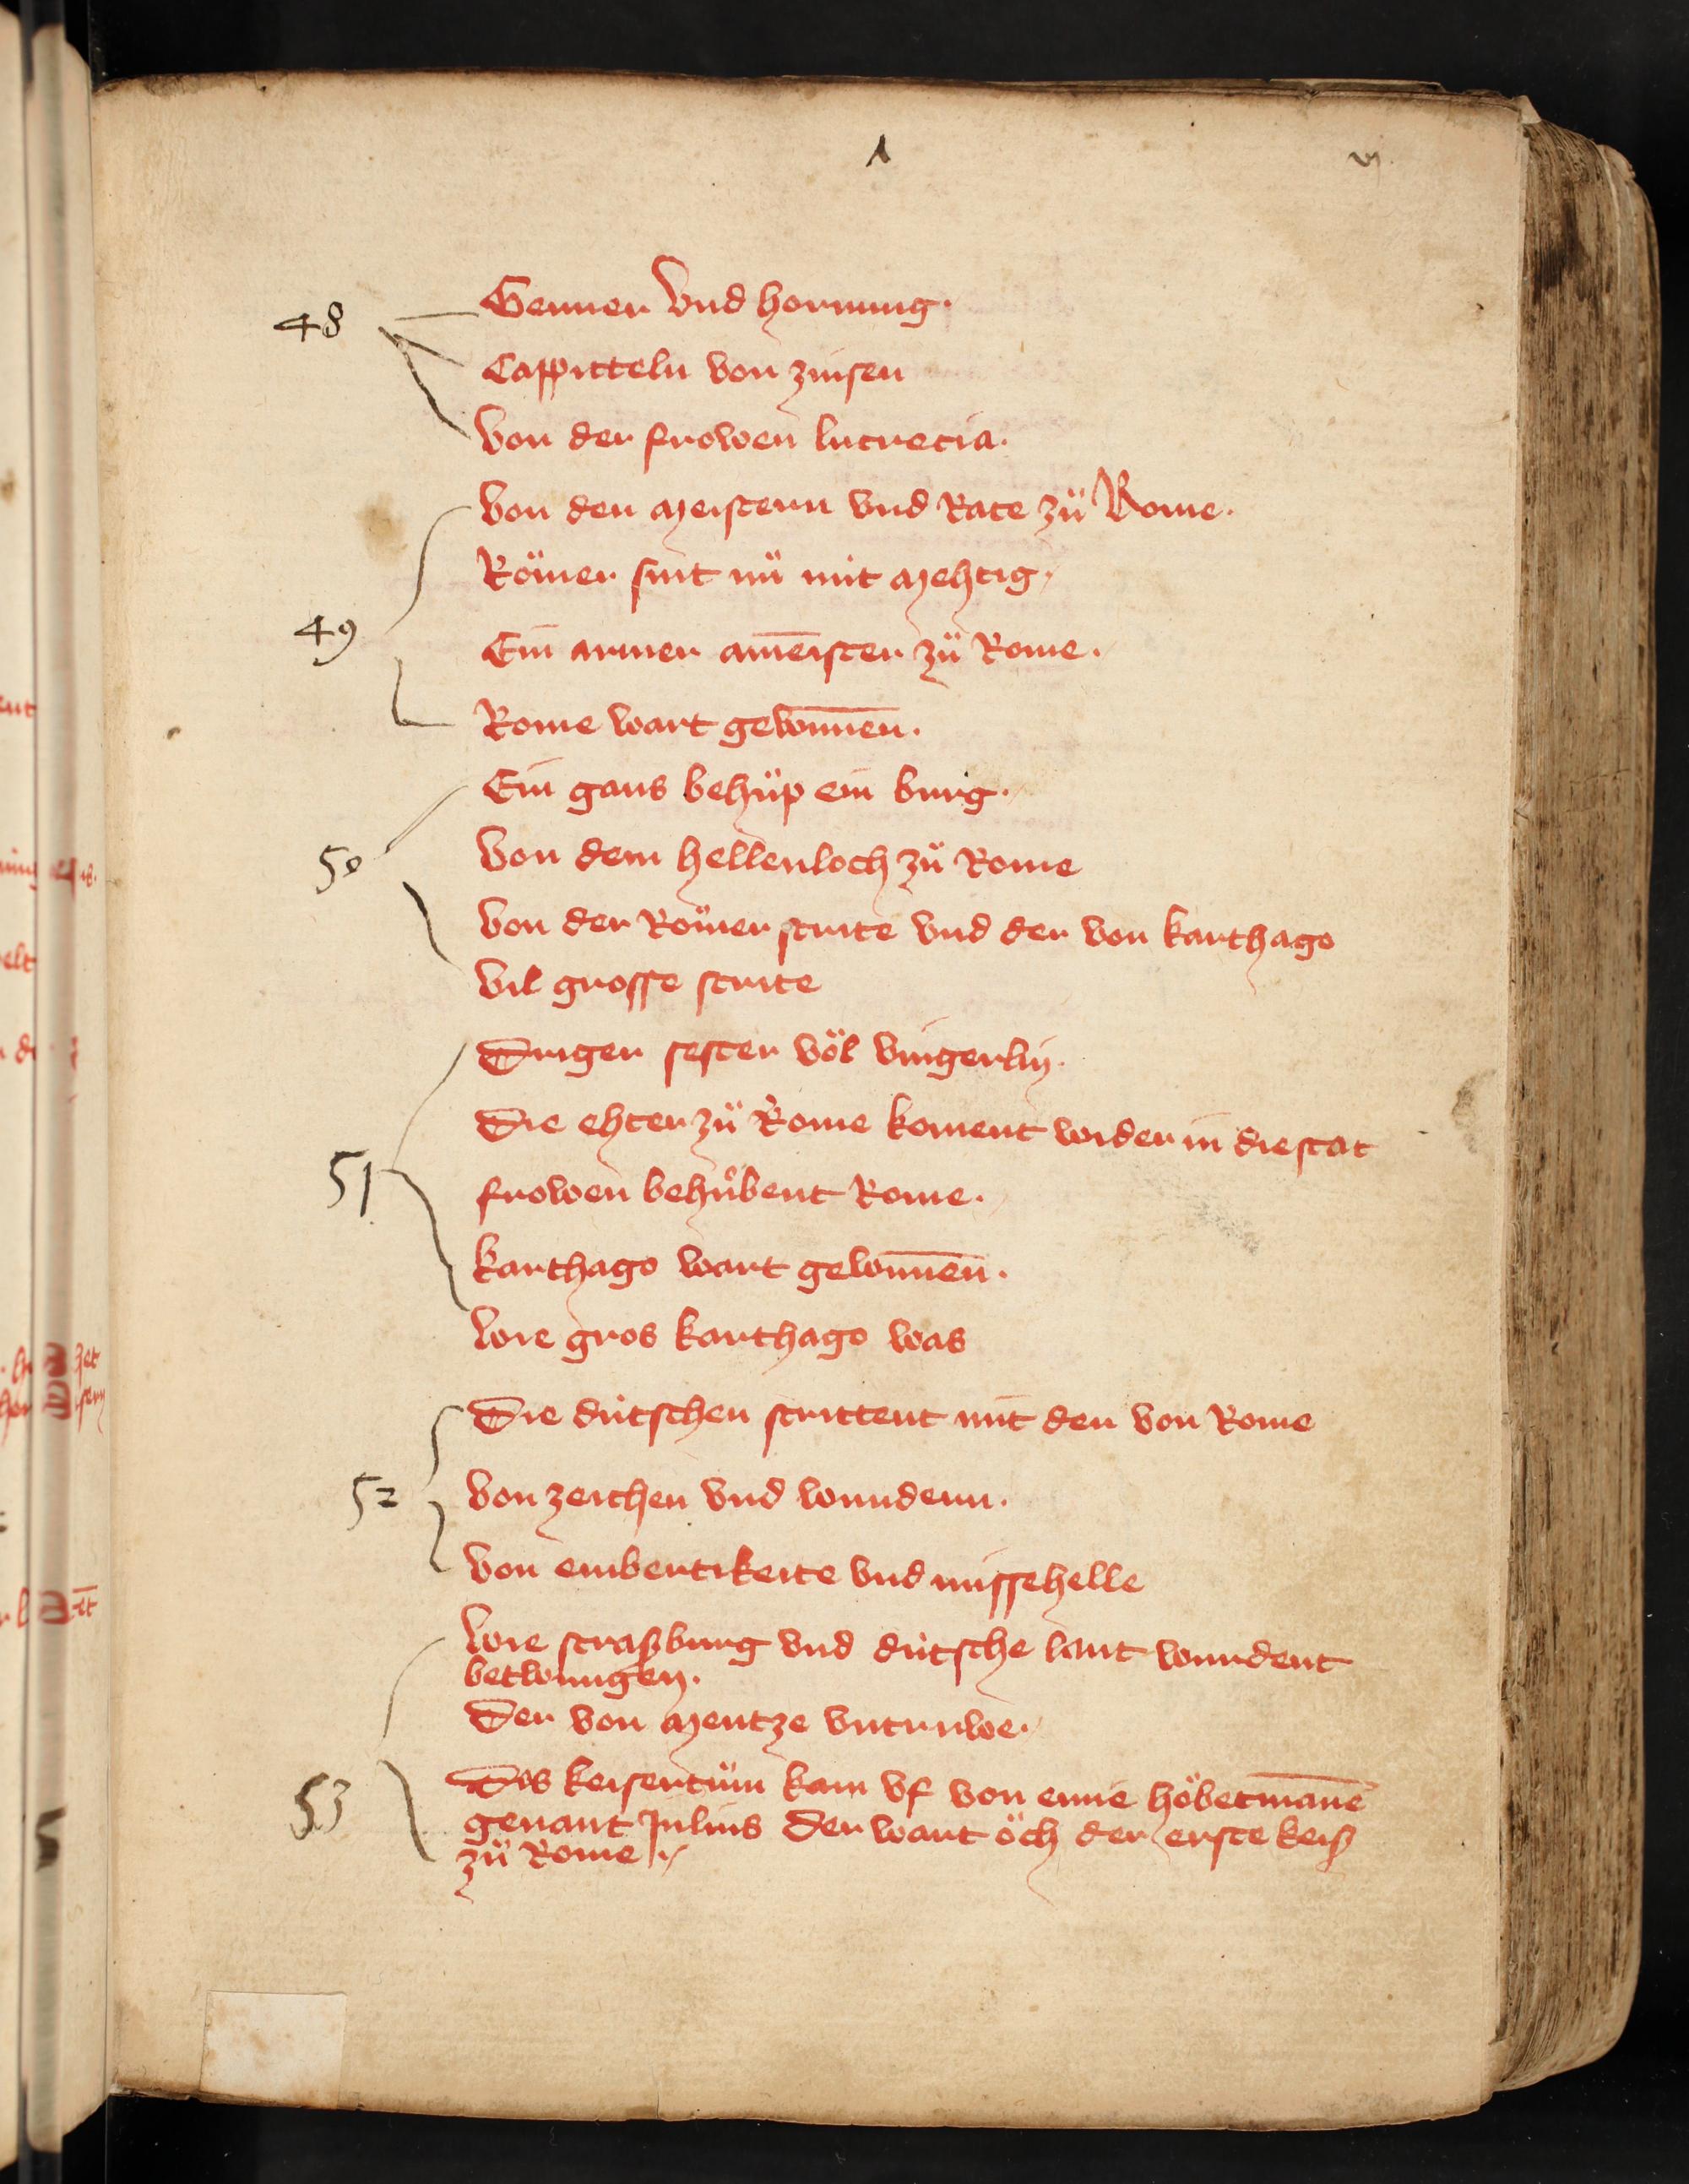 1 vj
48 Genner vnd hornung.
Cappitteln von zinsen
Von der frowen lucrecia.
Von den meistern vnd Rate zü Rome.
49 Römer sint nü mit mehtig.
Ein armer am̄eister zü Rome.
Rome wart gewonnē.
Ein gans behüp ein burg.
50 Von dem hellenloch zü Rome
Von der Römer strite vnd der von karthago
Vil grosse strite
Driger sester völ vingerlin.
Die ehter zü Rome koment wider in die stat
51 frowen behübent Rome.
karthago wart gewonnē.
Wie gros karthago was
Die dütschen strittent mit den von Rome
52 Von zeichen vnd wundern.
Von einbertikeite vnd missehelle
Wie straßburg vnd dütsche lant wurdent
betwungen.
Der von mentze vntruwe.
53 Dis keisertüm kam vf von eime höbetmanē
genant Julius der wart öch der erste keiß
zü Rome